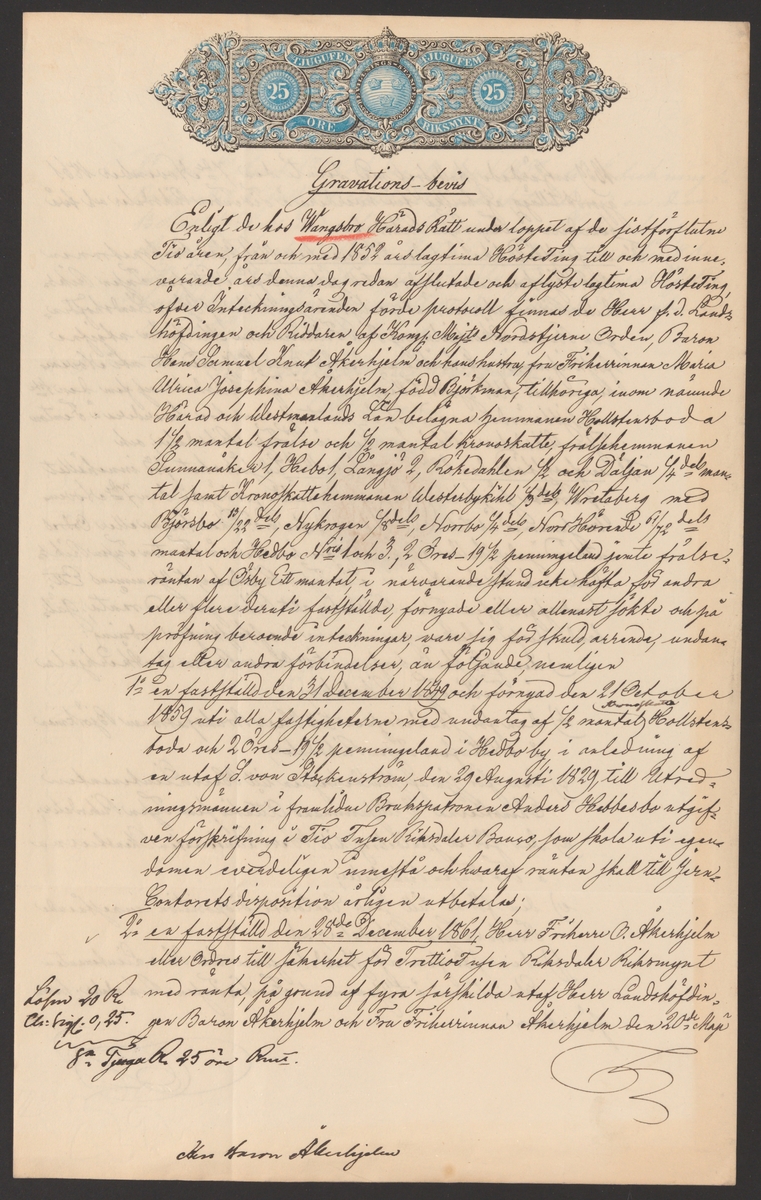 TJUGUFEM TJUGUFEM
25 25
ÖRE RIKSMYNT
Gravations-bevis
Enligt de hos Wångsbro Härads Rätt under loppet af de sistförflutne
Tio åren, från och med 1852 års lagtima HösteTing till och med inne-
varande års denna dag redan afslutade och aflyste lagtima HösteTing,
öfver Inteckningsärenden förde protocoll finnas de Herr f. d. Lands-
höfdingen och Riddaren af Kongl. Majts Nordstjerne Orden, Baron
Hans Samuel Knut Åkerhjelm och hans hustru, fru Friherrinnan Maria
Ulrica Josephina Åkerhjelm, född Björkman, tillhöriga, inom nämnde
Härad och Westmanlands Län belägna hemmanen Hollstensboda
1 1/2 mantal frälse och 1/2 mantal kronoskatte, frälsehemmanen
Sunnanåker 1, Hebo 1, Långsjö 2, Rökedahlen 1/2 och Däljan 1/4 dels man-
tal samt Kronoskattehemmanen Westerbykihl 1/3 dels, Wretaberg med
Björsbo 19/22 dels, Nykrogen 1/8 dels, Norrbo 1/4 dels, Norr Hörende 61/72 dels
mantal och Hedbo Nris 1 och 3, 2 Öres- 19 1/2 penningeland jemte frälse-
räntan af Osby Ett mantal i närvarande stund icke häfta för andra
eller flere deruti fastställde, förnyade eller allenast sökte och på
pröfning beroende inteckningar, vare sig för skuld, arrende, undan-
tag eller andra förbindelser, än följande, nemligen
1o en fastställd den 31 December 1849 och förnyad den 21 October
1859 uti alla fastigheterne med undantag af 1/2 mantal kronoskatte Hollstens-
boda och 2 Öres- 19 1/2 penningeland i Hedbo by i anledning af
en utaf S. von Stockenström, den 29 Augusti 1829 till Utred-
ningsmännen i framlidne Brukspatronen Anders Hebbes bo utgif-
ven förskrifning å Tio Tusen Riksdaler Banco, som skola uti egen-
domen everdeligen innestå och hwaraf räntan skall till Jern-
Contorets disposition årligen utbetalas;
2o en fastställd den 28de December 1861, Herr Friherre O. Åkerhjelm
eller Ordres till säkerhet för TrettioTusen Riksdaler Riksmynt
med ränta, på grund af fyra särskilda utaf Herr Landshöfdin-
gen Baron Åkerhjelm och Fru Friherrinnan Åkerhjelm den 20de Maji
Lösen 20 R
Ch: Sigf. 0,25.
Sa Tjugu R 25 öre Rmt.
Herr Baron Åkerhjelm